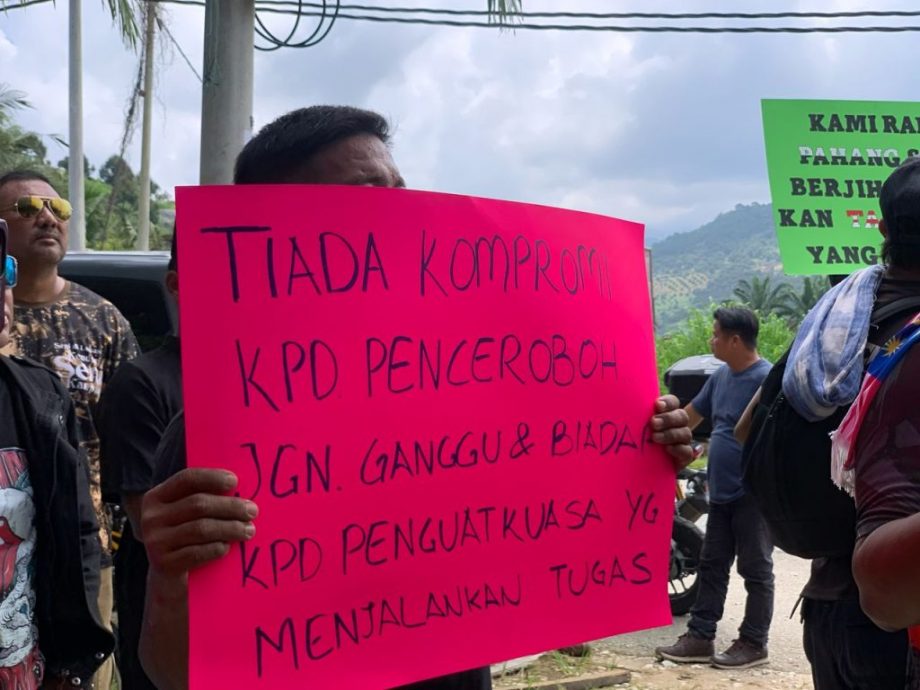 TIADA KOMPROMI
KPD. PENCEROBOH
JGN. GANGGU & BIADAP
KPD PENGUATKUASA YG
MENJALANKAN TUGAS
KAMI RA
PAHANG
BERJIH
KAN TA
YANG